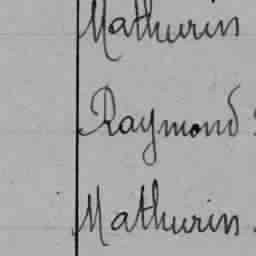 Mathurin
Raymond
Mathurin